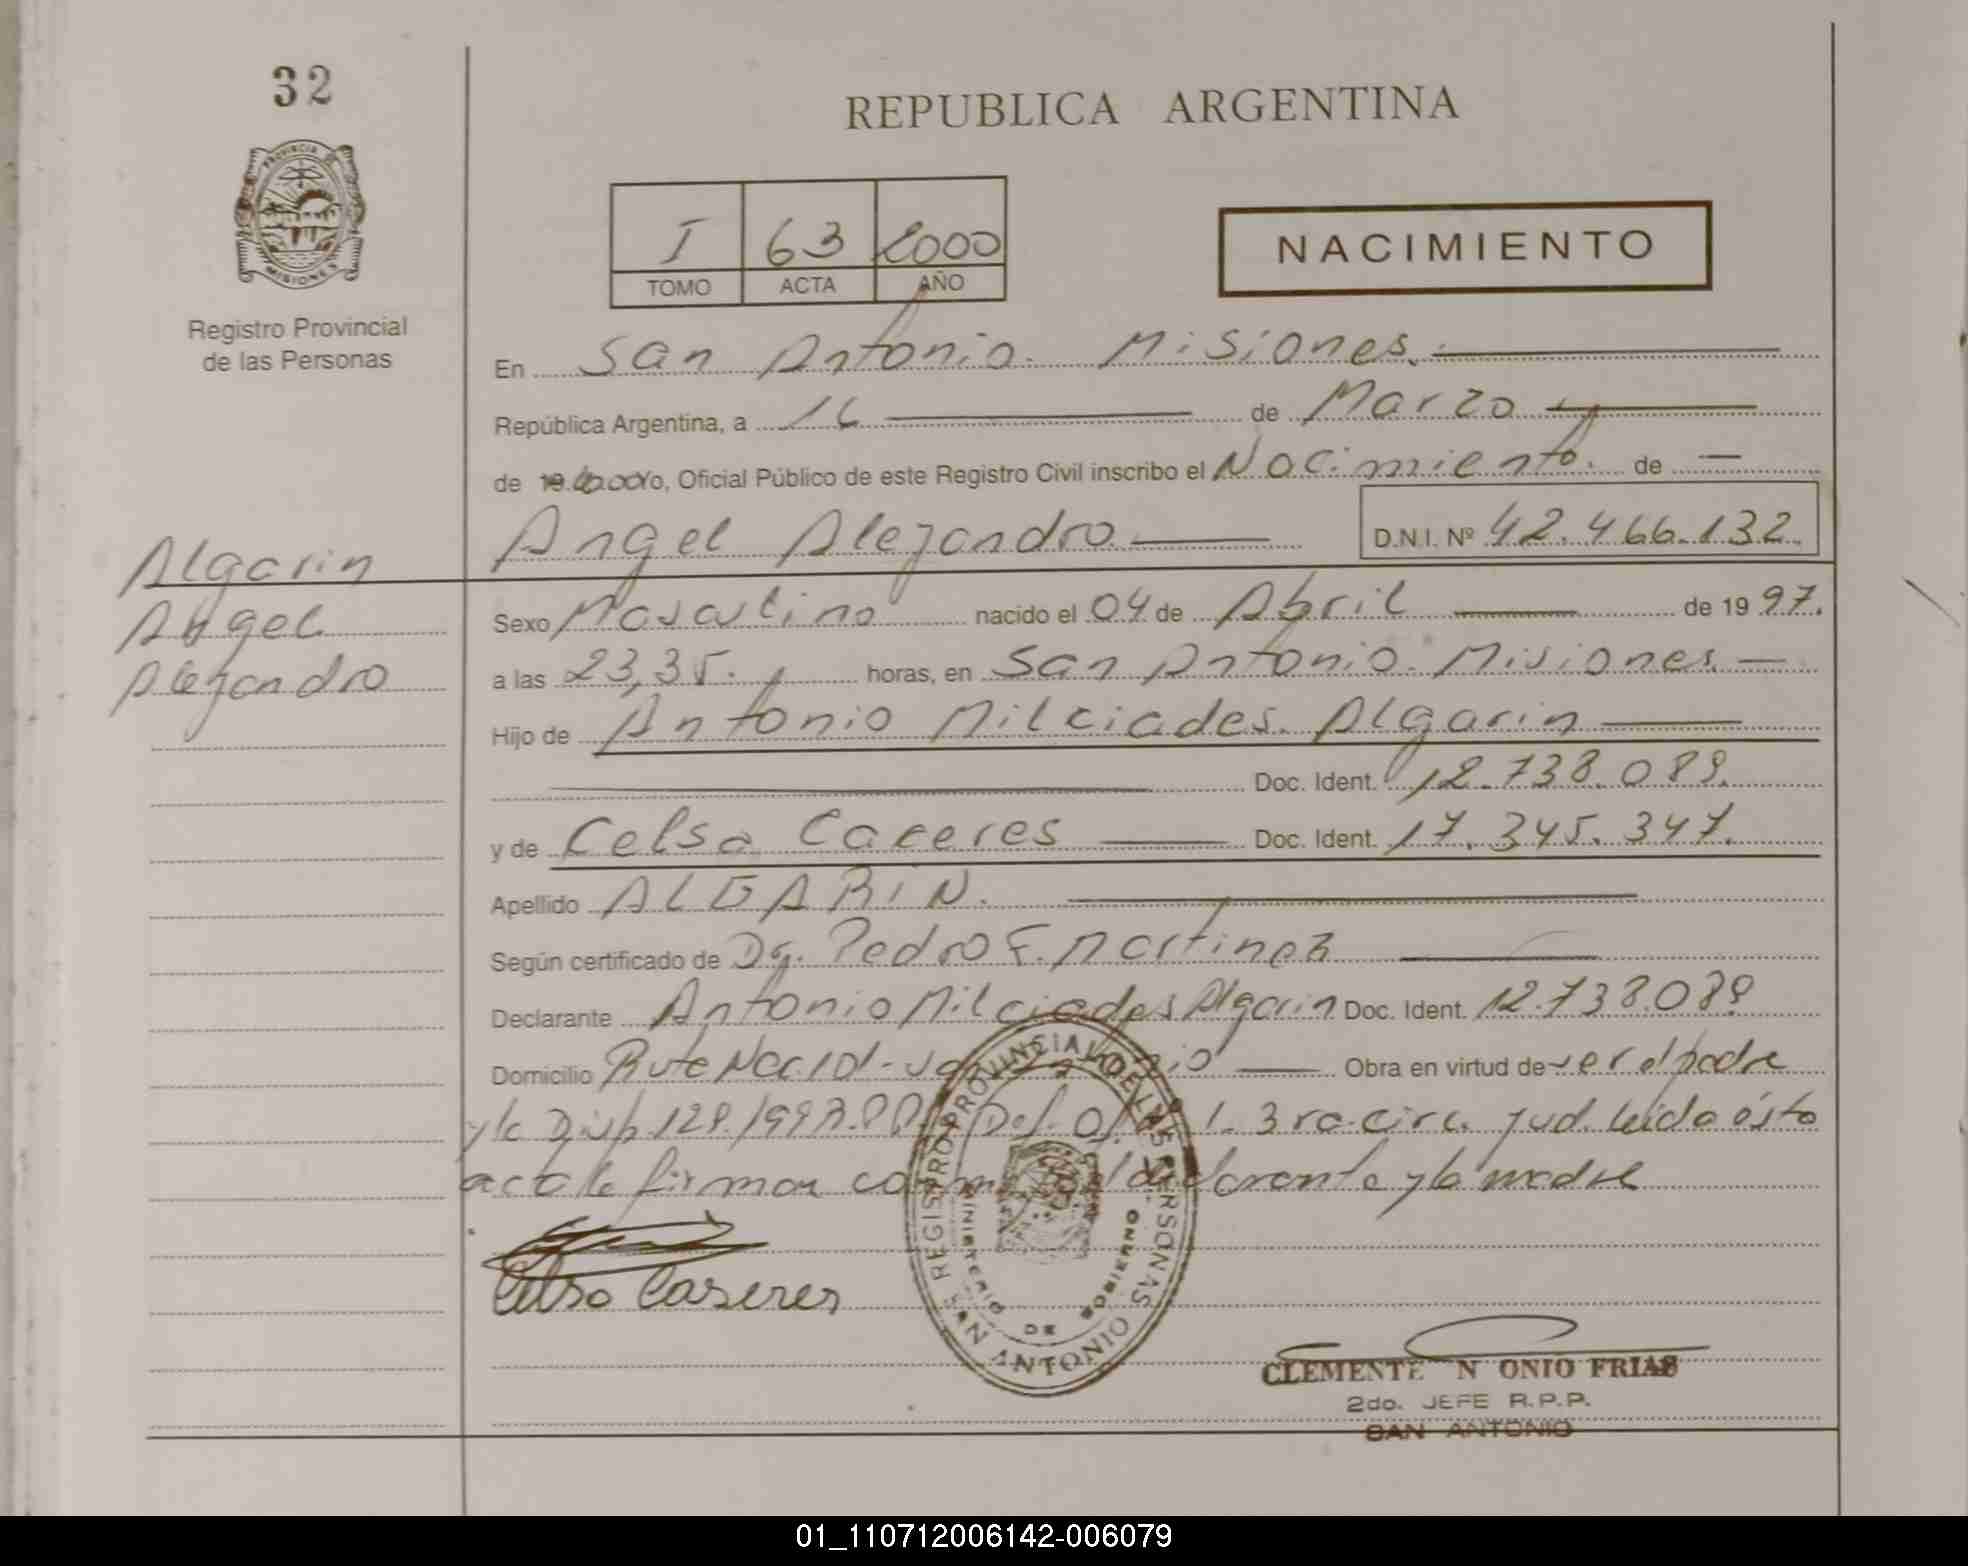 32
PROVINCIA DE
MISIONES
Registro Provincial
de las Personas
REPUBLICA ARGENTINA
I 63 2000
TOMO ACTA AÑO
NACIMIENTO
En San Antonio. Misiones.
República Argentina, a 16 de Marzo
de 19 2000 Yo, Oficial Público de este Registro Civil inscribo el Nacimiento. de —
Angel Alejandro D.N.I. Nº 42.466.132.
Algarin
Angel
Alejandro
Sexo Masculino nacido el 04 de Abril de 19 97.
a las 23,35. horas, en San Antonio. Misiones.
Hijo de Antonio Milciades. Algarin
Doc. Ident. 12.738.089.
y de Celsa Caceres Doc. Ident. 17.345.347.
Apellido ALGARIN.
Según certificado de Dr. Pedro E. Martinez
Declarante Antonio Milciades Algarin Doc. Ident. 12.738.089
Domicilio Ruta Nac 101 - Obra en virtud de ser el padre
y la Disp 128/ Def. Of. 1. 3ra circ. jud. leida ésta
acta la firman declarante y la madre
Celsa Caseres
REGISTRO PROVINCIAL DE LAS PERSONAS
MINISTERIO DE GOBIERNO
SAN ANTONIO
CLEMENTE N ONIO FRIAS
2do. JEFE R.P.P.
SAN ANTONIO
01_110712006142-006079